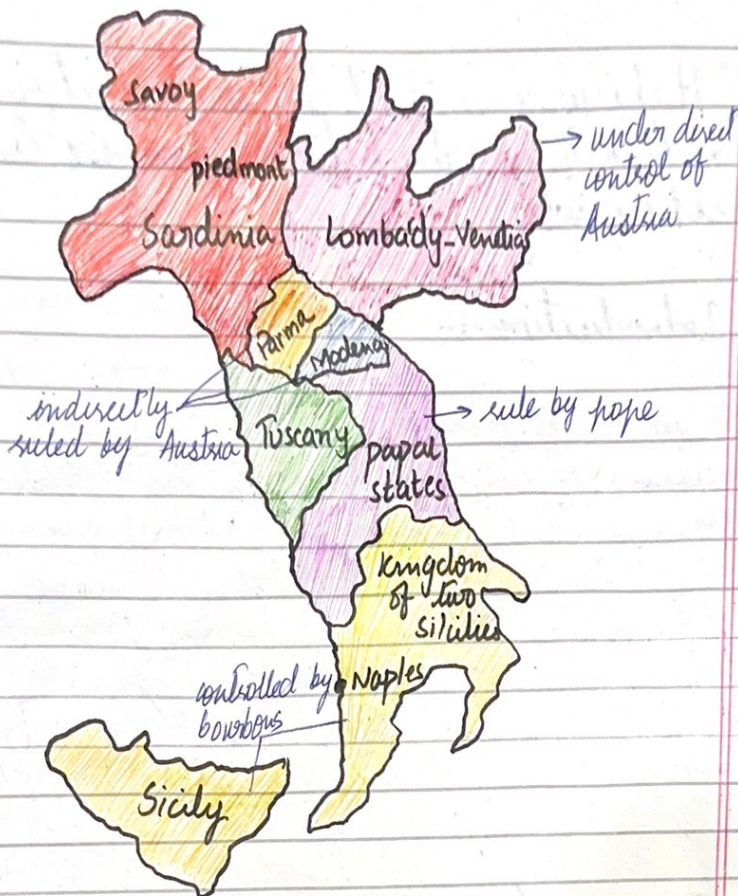 Savoy
piedmont
Sardinia
Lombardy-Venetia
→ under direct
control of
Austria
Parma
Modena
indirectly
ruled by Austria
Tuscany
→ rule by pope
papal
states
kingdom
of two
silcilies
controlled by
bourbons
Naples
Sicily